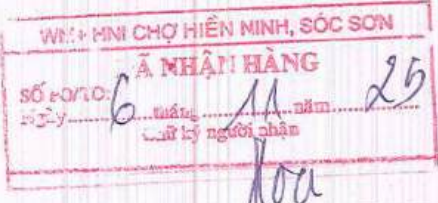 WM+ HNI CHỢ HIỀN NINH, SÓC SƠN
Ã NHẬN HÀNG
SỐ PO/TO:
Ngày 6 tháng 11 năm 25
Chữ ký người nhận
Hoa